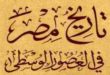 تاريخ مصر
في العصور الوسطى